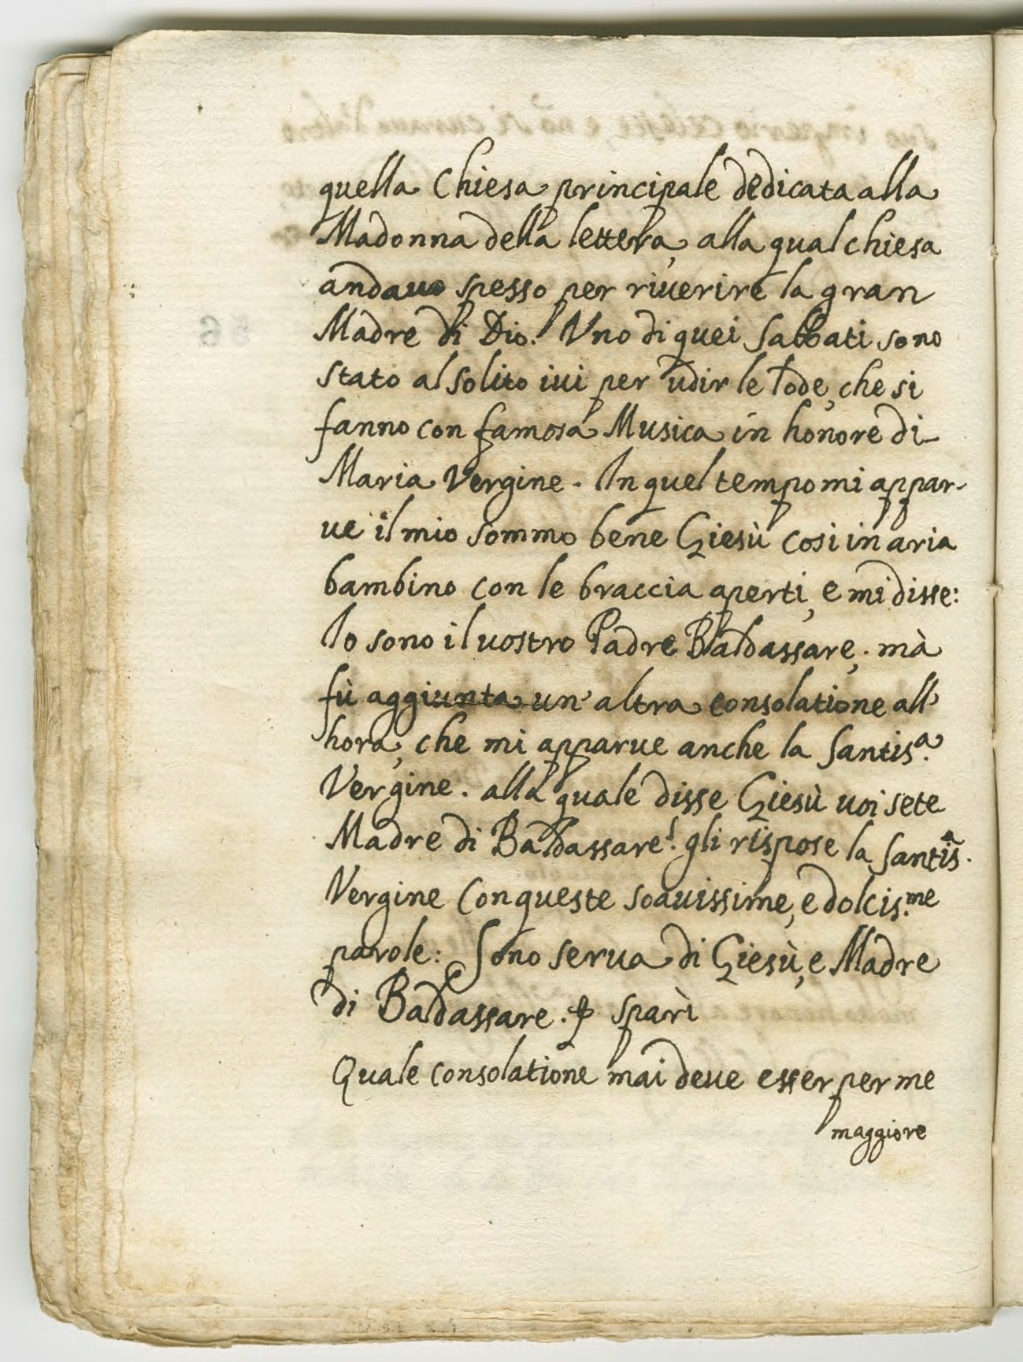 quella Chiesa principale dedicata alla
Madonna della lettera, alla qual chiesa
andavo spesso per riuerire la gran
Madre di Dio. Uno di quei Sabbati sono
stato al solito iui per udir le lode, che si
fanno con famosa Musica in honore di
Maria Vergine. In quel tempo mi appar-
ue il mio sommo bene Giesù cosi in aria
bambino con le braccia aperti, e mi disse:
Io sono il uostro Padre Baldassare, mà
fù aggiunta un' altra consolatione all'
hora, che mi apparue anche la Santis.a
Vergine. alla quale disse Giesù uoi sete
Madre di Baldassare! gli rispose la Santis.a
Vergine con queste soauissime, e dolcis.me
parole: Sono serua di Giesù, e Madre
di Baldassare. sparì
Quale consolatione mai deue esser per me
maggiore